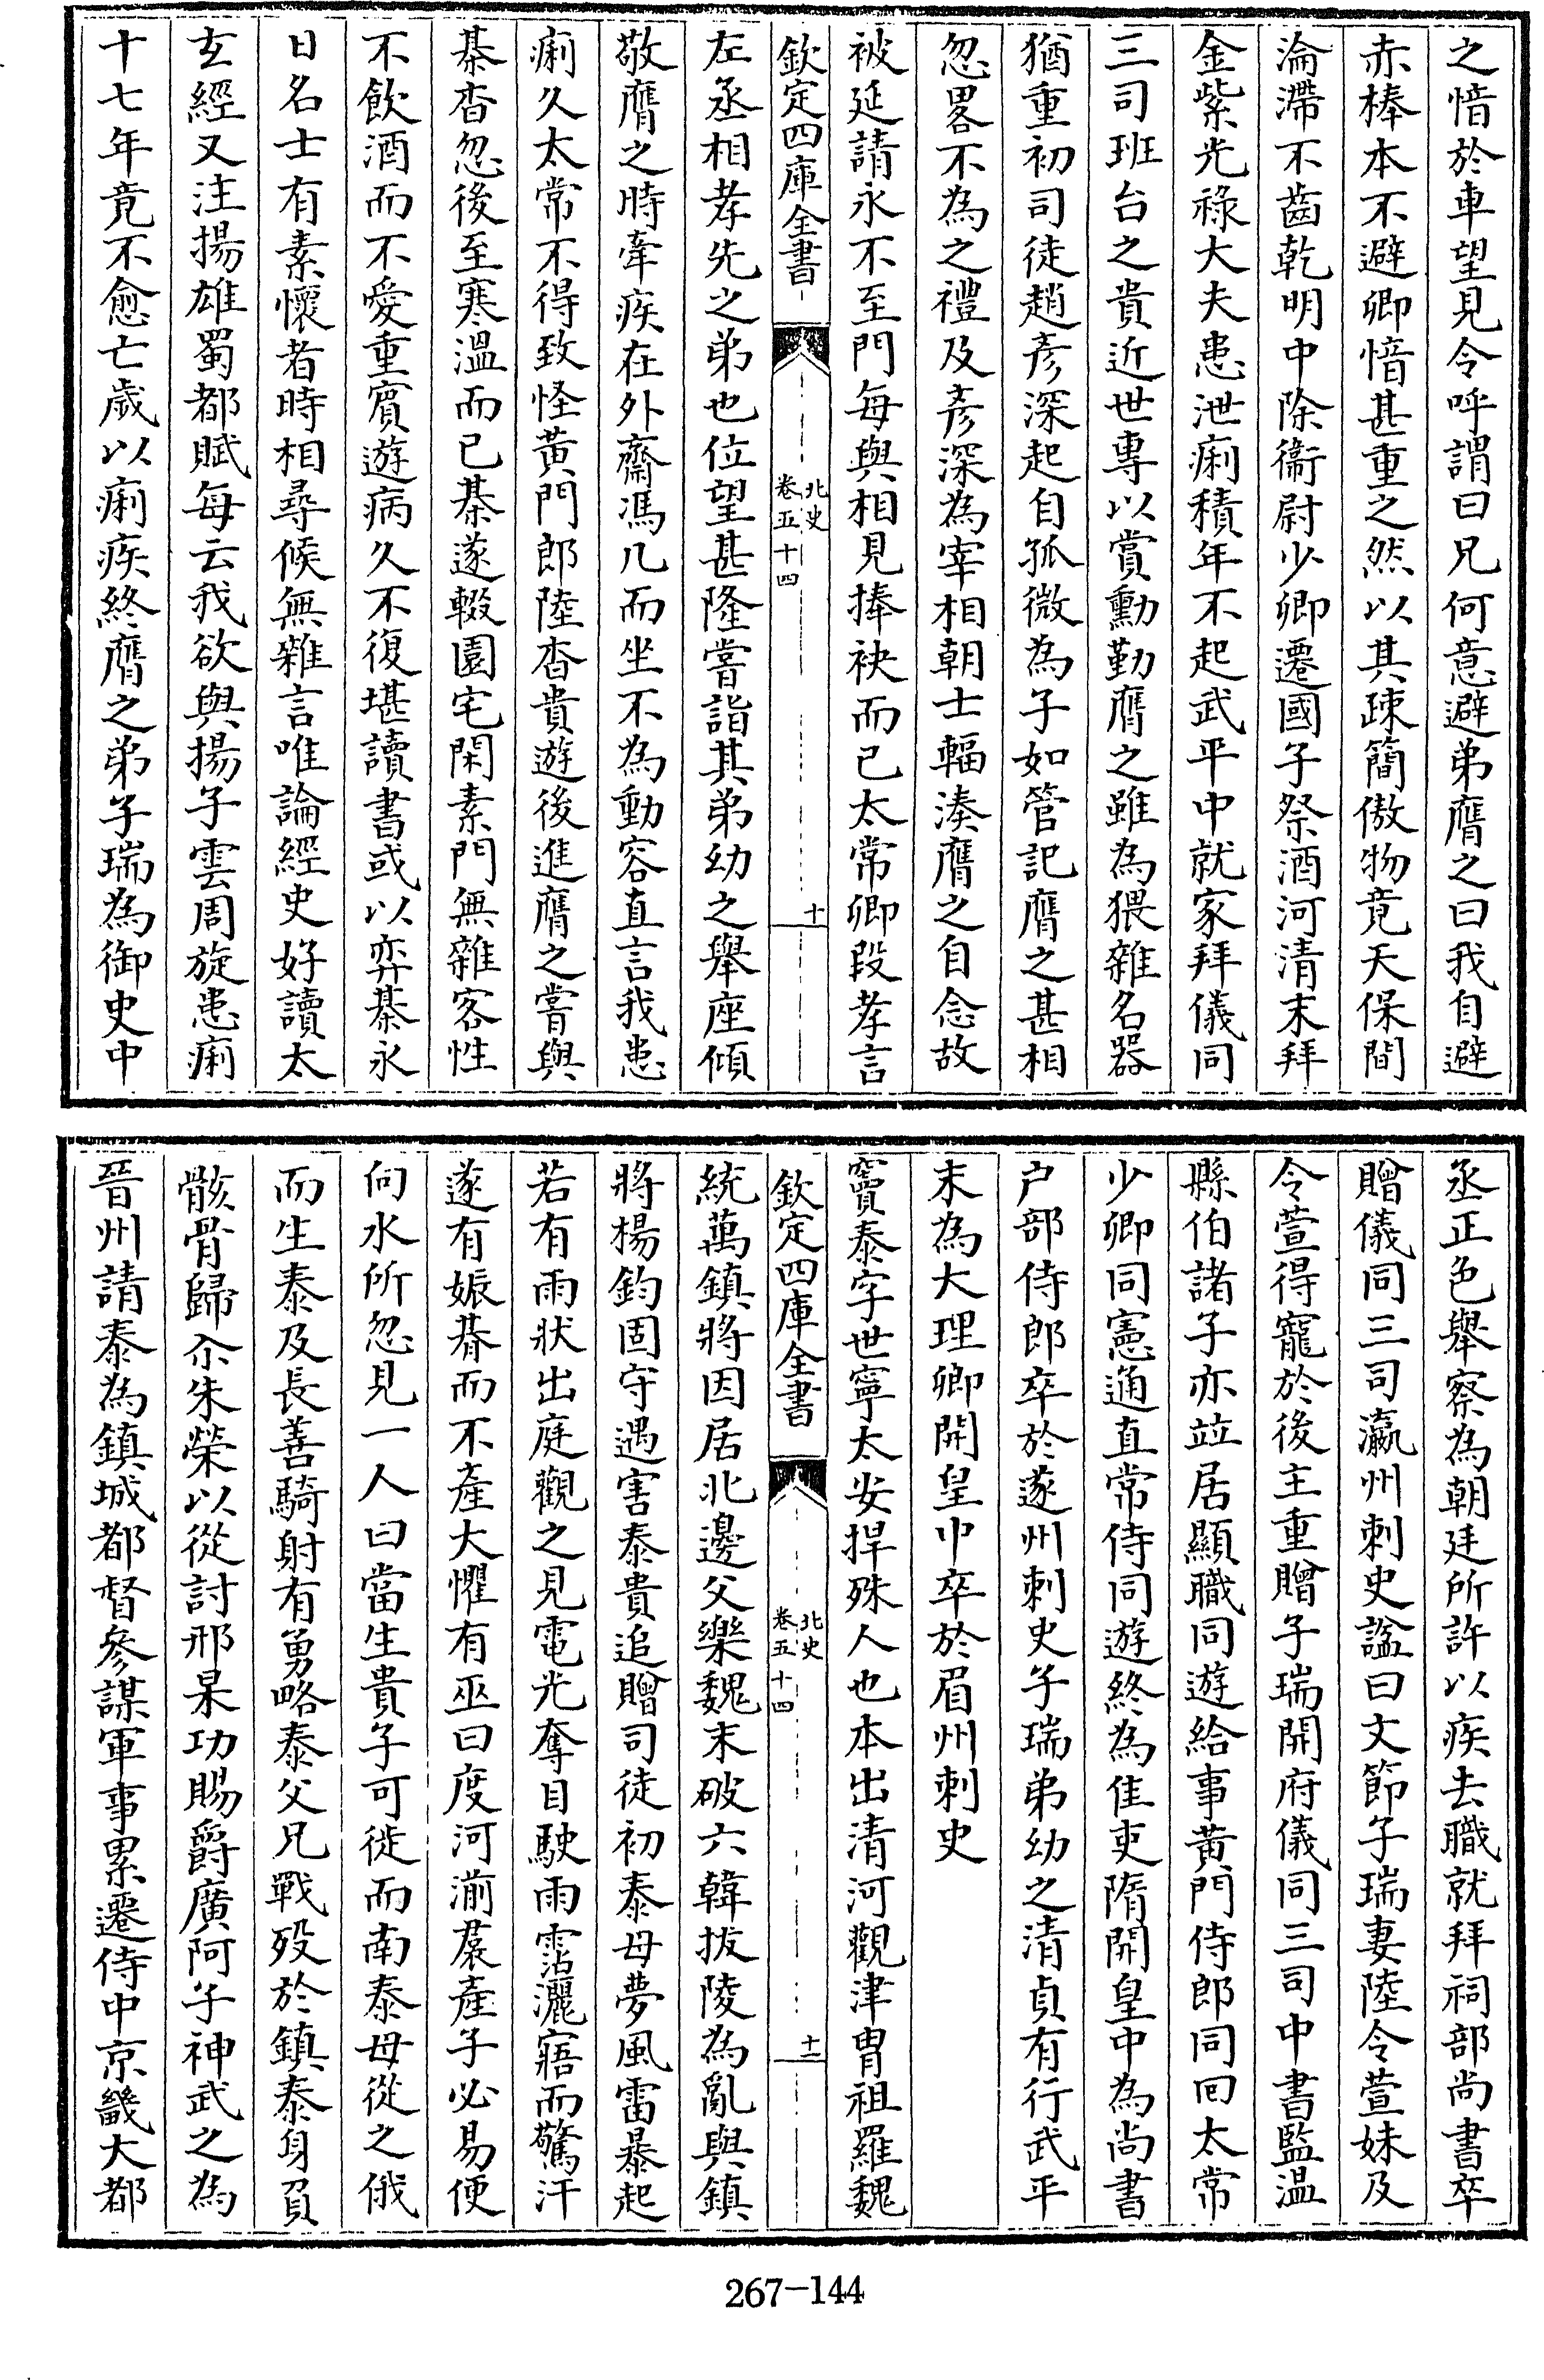 之愔於車望見令呼謂曰兄何意避弟膺之曰我自避
赤棒本不避卿愔甚重之然以其疎簡傲物竟天保間
淪滯不齒乾明中除衞尉少卿遷國子祭酒河清末拜
金紫光祿大夫患泄痢積年不起武平中就家拜儀同
三司班台之貴近世專以賞勳勤膺之雖為猥雜名器
猶重初司徒趙彥深起自孤微為子如管記膺之甚相
忽畧不為之禮及彥深為宰相朝士輻湊膺之自念故
被延請永不至門每與相見捧袂而已太常卿段孝言
欽定四庫全書
北史
卷五十四
十
左丞相孝先之弟也位望甚隆嘗詣其弟幼之舉座傾
敬膺之時牽疾在外齋馮几而坐不為動容直言我患
痢久太常不得致怪黃門郎陸杳貴遊後進膺之嘗與
棊杳忽後至寒溫而已棊遂輟園宅閑素門無雜客性
不飲酒而不愛重賓遊病久不復堪讀書或以弈棊永
日名士有素懷者時相尋候無雜言唯論經史好讀太
玄經又注揚雄蜀都賦每云我欲與揚子雲周旋患痢
十七年竟不愈亡歲以痢疾終膺之弟子瑞為御史中
丞正色舉察為朝廷所許以疾去職就拜祠部尚書卒
贈儀同三司瀛州刺史諡曰文節子瑞妻陸令萱妹及
令萱得寵於後主重贈子瑞開府儀同三司中書監温
縣伯諸子亦竝居顯職同遊給事黃門侍郎同回太常
少卿同憲通直常侍同遊終為佳吏隋開皇中為尚書
户部侍郎卒於遂州刺史子瑞弟幼之清貞有行武平
末為大理卿開皇中卒於眉州刺史
竇泰字世寧太安捍殊人也本出清河觀津胄祖羅魏
欽定四庫全書
北史
卷五十四
十一
統萬鎮將因居北邊父樂魏末破六韓拔陵為亂與鎮
將楊鈞固守遇害泰貴追贈司徒初泰母夢風雷暴起
若有雨狀出庭觀之見電光奪目駛雨霑灑寤而驚汗
遂有娠朞而不產大懼有巫曰度河湔裠產子必易便
向水所忽見一人曰當生貴子可徙而南泰母從之俄
而生泰及長善騎射有勇略泰父兄戰殁於鎮泰身負
骸骨歸尒朱榮以從討邢杲功賜爵廣阿子神武之為
晉州請泰為鎮城都督參謀軍事累遷侍中京畿大都
267-144